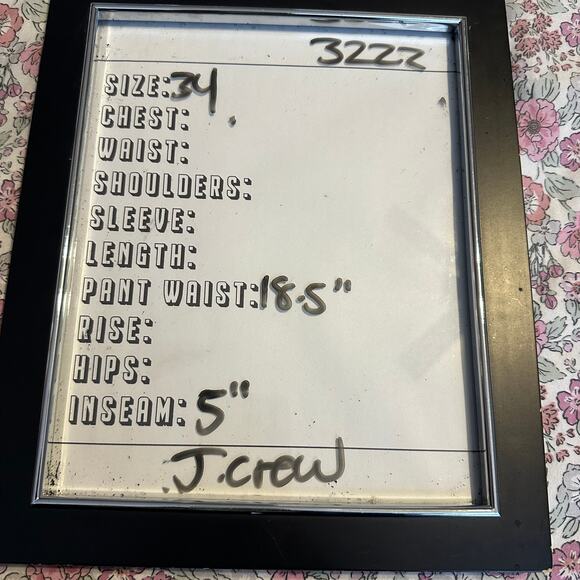 3222
SIZE: 34
CHEST:
WAIST:
SHOULDERS:
SLEEVE:
LENGTH:
PANT WAIST: 18.5"
RISE:
HIPS:
INSEAM: 5"
J.Crew